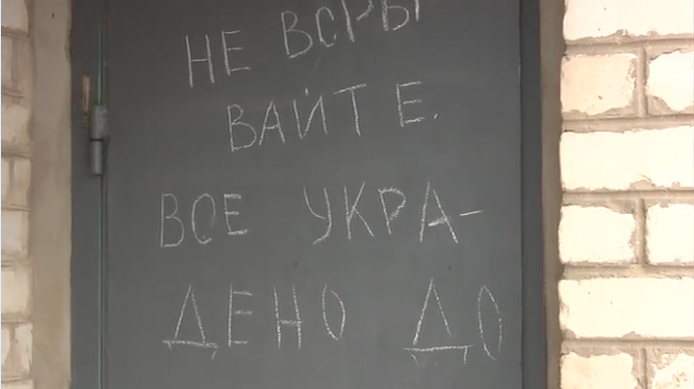 НЕ ВСРЫ
ВАЙТЕ.
ВСЕ УКРА-
ДЕНО ДО